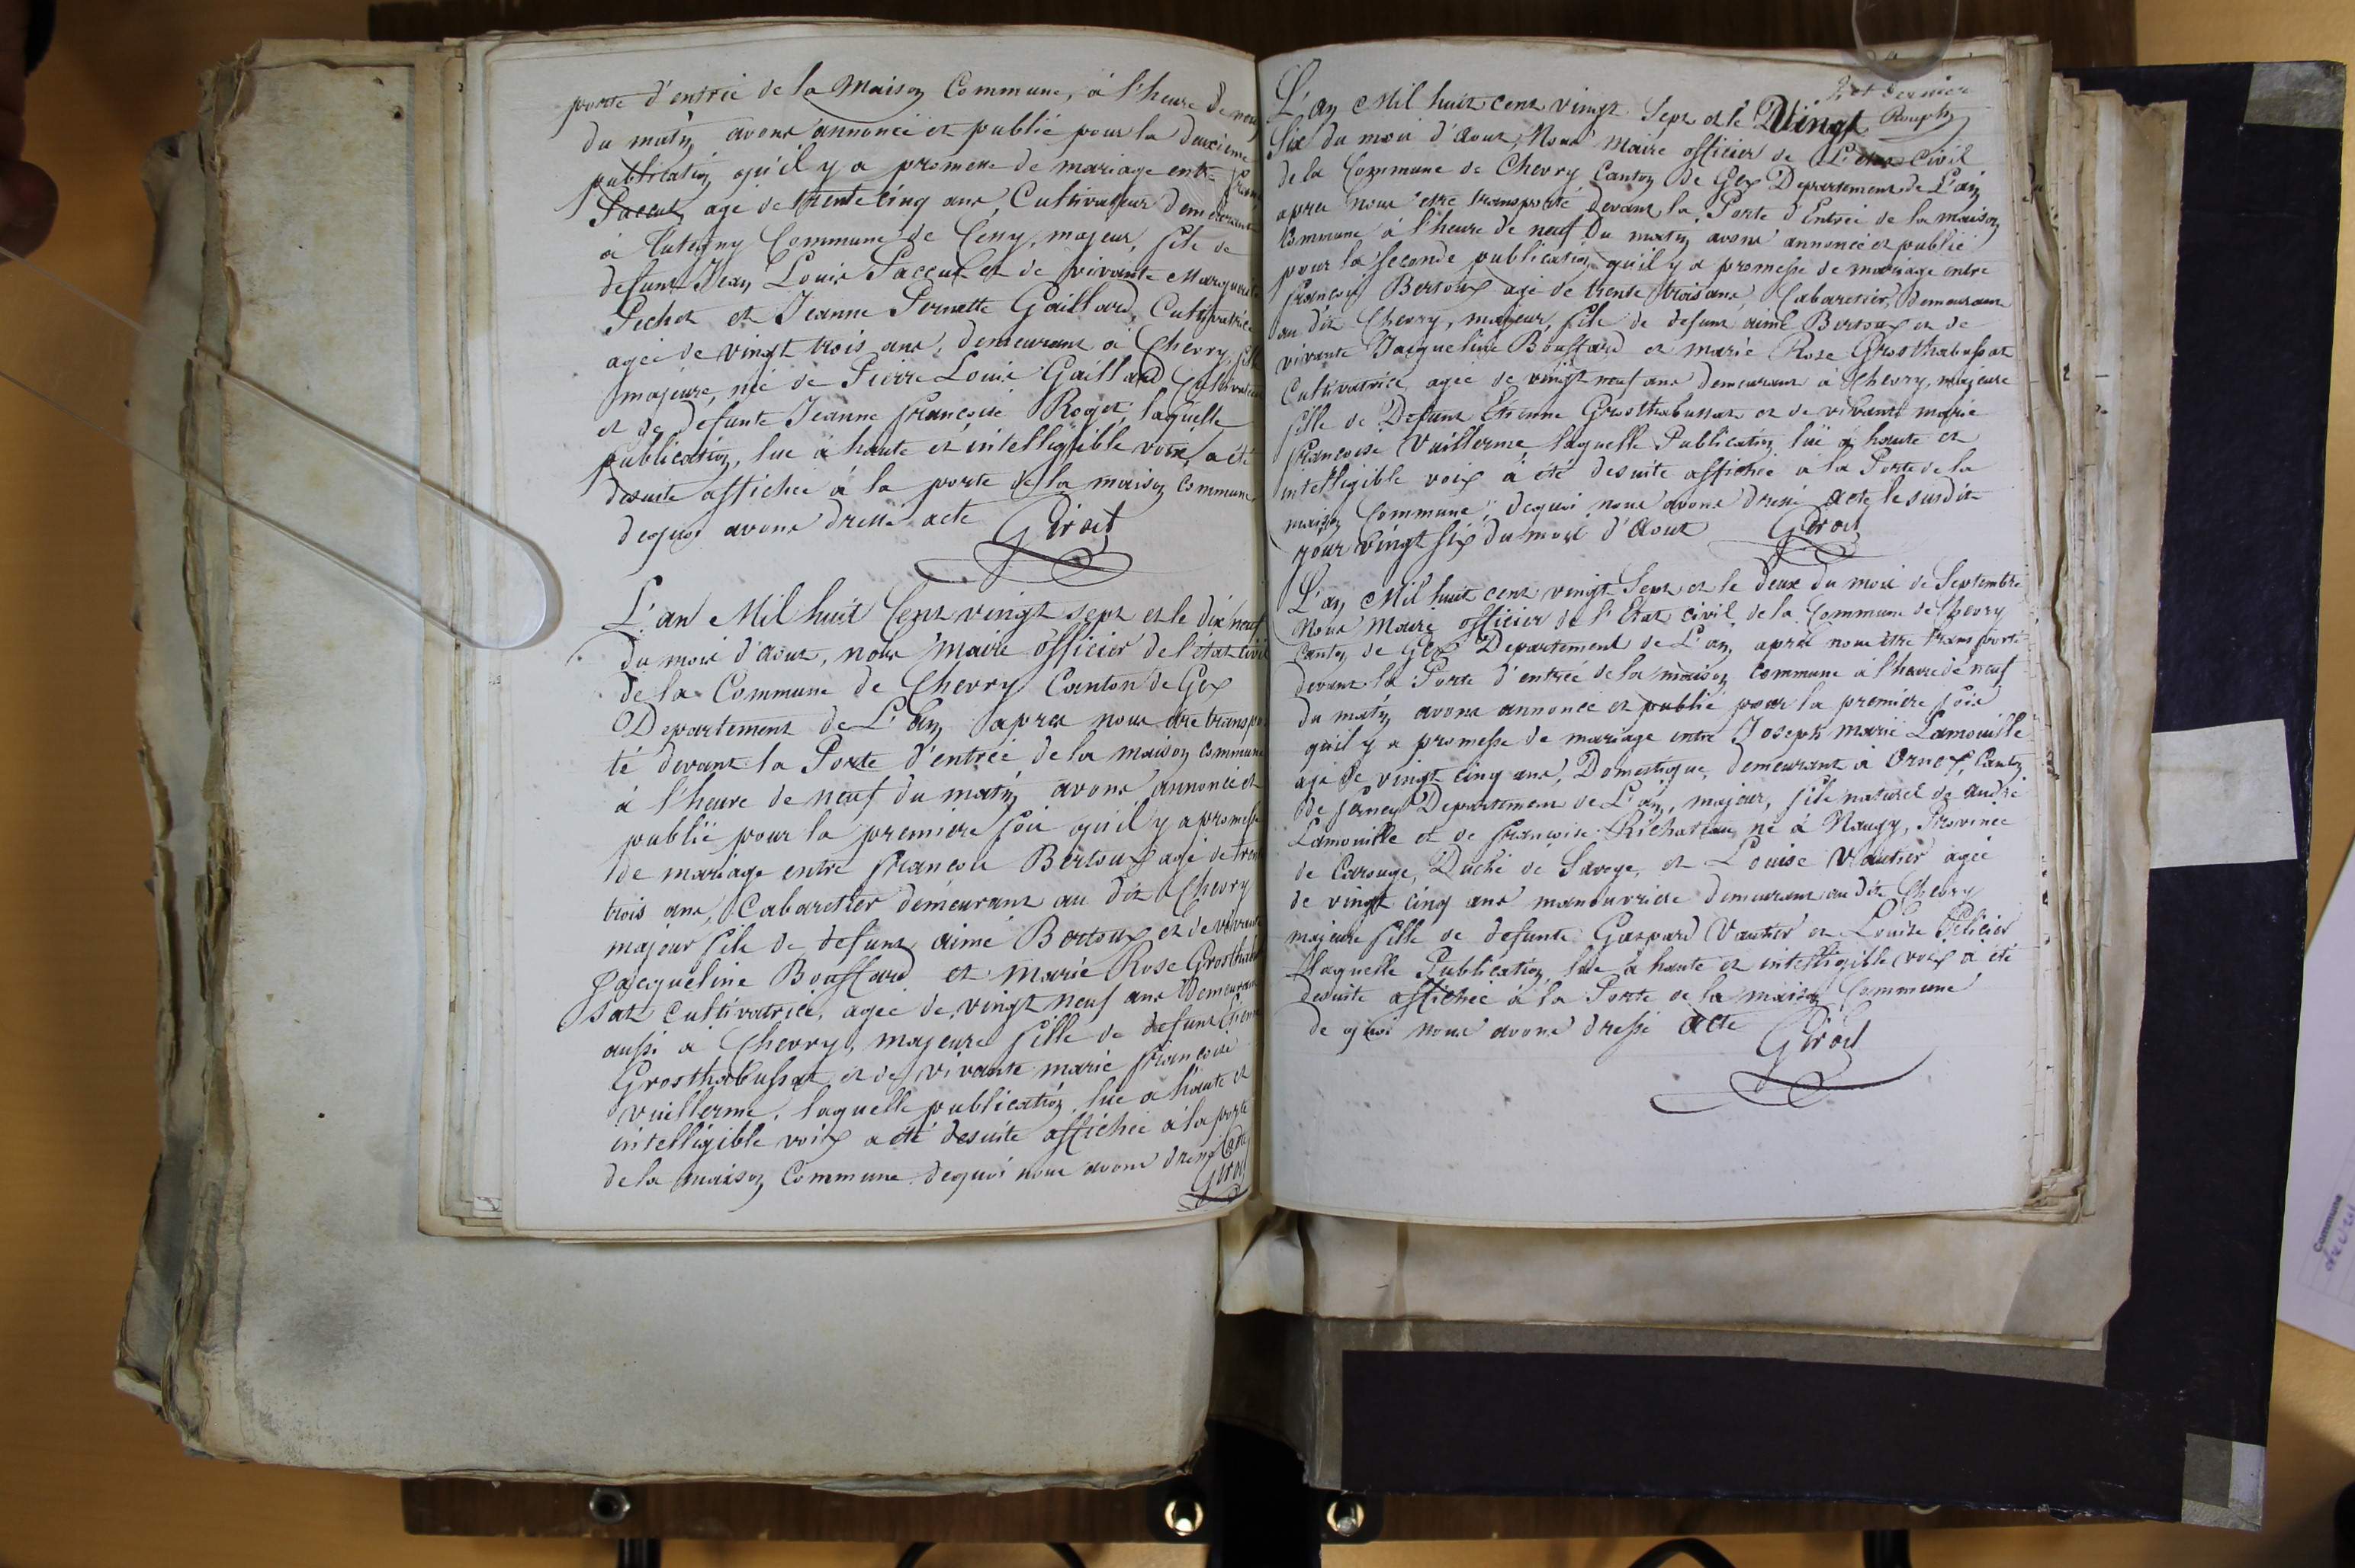 porte d'entrée de la Maison Commune, à l'heure de neuf
du matin avons annoncé et publié pour la deuxieme
publication qu'il y a promesse de mariage entre
Paccut agé de trente cinq ans, Cultivateur demeurant
à Commune de Cessy, majeur, fils de
defunt Jean Louis Paccut et de vivante Marguerite
Pechet et Jeanne Pernette Gaillard, Cultivatrice
agée de vingt trois ans, demeurant à Chevry, fille
majeure, née de Pierre Louis Gaillard Cultivateur
et de defunte Jeanne francoise Roget, laquelle
publication, lue à haute et intelligible voix, a été
desuite affichée à la porte de la maison Commune
dequoi avons dressé acte Girod
L'an Mil huit Cent vingt sept et le dix neuf
du mois d'aout, nous maire officier de l'état civil
de la Commune de Chevry Canton de Gex
Departement de L'ain apres nous etre transpor
té devant la Porte d'entrée de la maison Commune
à l'heure de neuf du matin avons annoncé et
publié pour la premiere fois qu'il y a promesse
de mariage entre francois Bertoux agé de trente
trois ans, Cabaretier demeurant au dit Chevry
majeur fils de defunt aimé Bertoux et de vivante
Jacqueline Bouffard et marie Rose Grosthabus
sat Cultivatrice, agée de vingt neuf ans demeurant
aussi à Chevry, majeure fille de defunt Etienne
Grosthabussat et de vivante marie francoise
vuillerme, laquelle publication, lue a haute et
intelligible voix a été desuite affichée à la porte
de la maison Commune dequoi nous avons dressé acte
Girod
2 et dernier
Rouph
L'an Mil huit cent vingt Sept et le Vingt
Six du mois d'aout, Nous maire officier de L'etat Civil
de la Commune de Chevry Canton de Gex Departement de L'ain
apres nous etre transporté devant la Porte d'Entrée de la maison
Commune à l'heure de neuf du matin avons annoncé et publié
pour la Seconde publication qu'il y a promesse de mariage entre
francois Bertoux agé de trente trois ans, Cabaretier, demeurant
au dit Chevry, majeur, fils de defunt aimé Bertoux et de
vivante Jacqueline Bouffard et marie Rose Grosthabussat
Cultivatrice agée de vingt neuf ans demeurant à Chevry, majeure
fille de Defunt Etienne Grosthabussat et de vivante marie
francoise Vuillerme, laquelle Publication lue à haute et
intelligible voix à été desuite affichée à la Porte de la
maison Commune; dequoi nous avons dressé acte le susdit
jour vingt six du mois d'Aout Girod
L'an Mil huit cent vingt Sept et le deux du mois de Septembre
Nous Maire officier de l'Etat civil de la Commune de Chevry
Canton de Gex Departement de L'ain apres nous etre transporté
devant la Porte d'entrée de la maison commune à l'heure de neuf
du matin avons annoncé et publié pour la premiere fois
qu'il y a promesse de mariage entre Joseph marie Lamouille
agé de vingt cinq ans, Domestique, demeurant à Ornex, Canton
de ferney Departement de L'ain, majeur, fils naturel de andré
Lamouille et de francoise né à Nangy, Province
de Carouge, Duché de Savoye, et Louise Vautier agée
de vingt cinq ans manouvriere demeurant au dit Chevry
majeure fille de defunts Gaspard Vautier et Louise Pelicier
Laquelle Publication, lue à haute et intelligible voix à été
desuite affichée à la Porte de la maison Commune
de quoi nous avons dressé acte
Girod
Commune